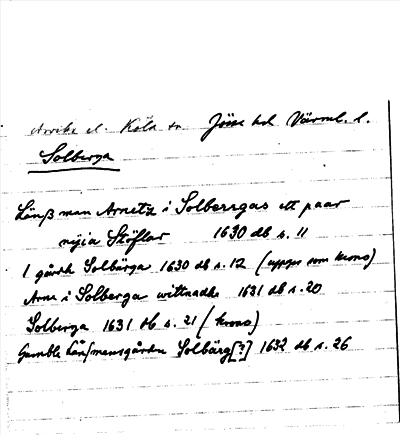 Arvika el. Köla sn Jösse hd Värml. l.
Solberga
Länßman Arnetz i Solbergas ett paar
nyia Stöflar 1630 db s. 11
1 gårdh Solbärga 1630 db s. 12 (uppges som krono)
Arne i Solberga wittnadhe 1631 db s. 20
Solberga 1631 db s. 21 (krono)
Gamble Länßmansgården Solbärg[?] 1632 db s. 26